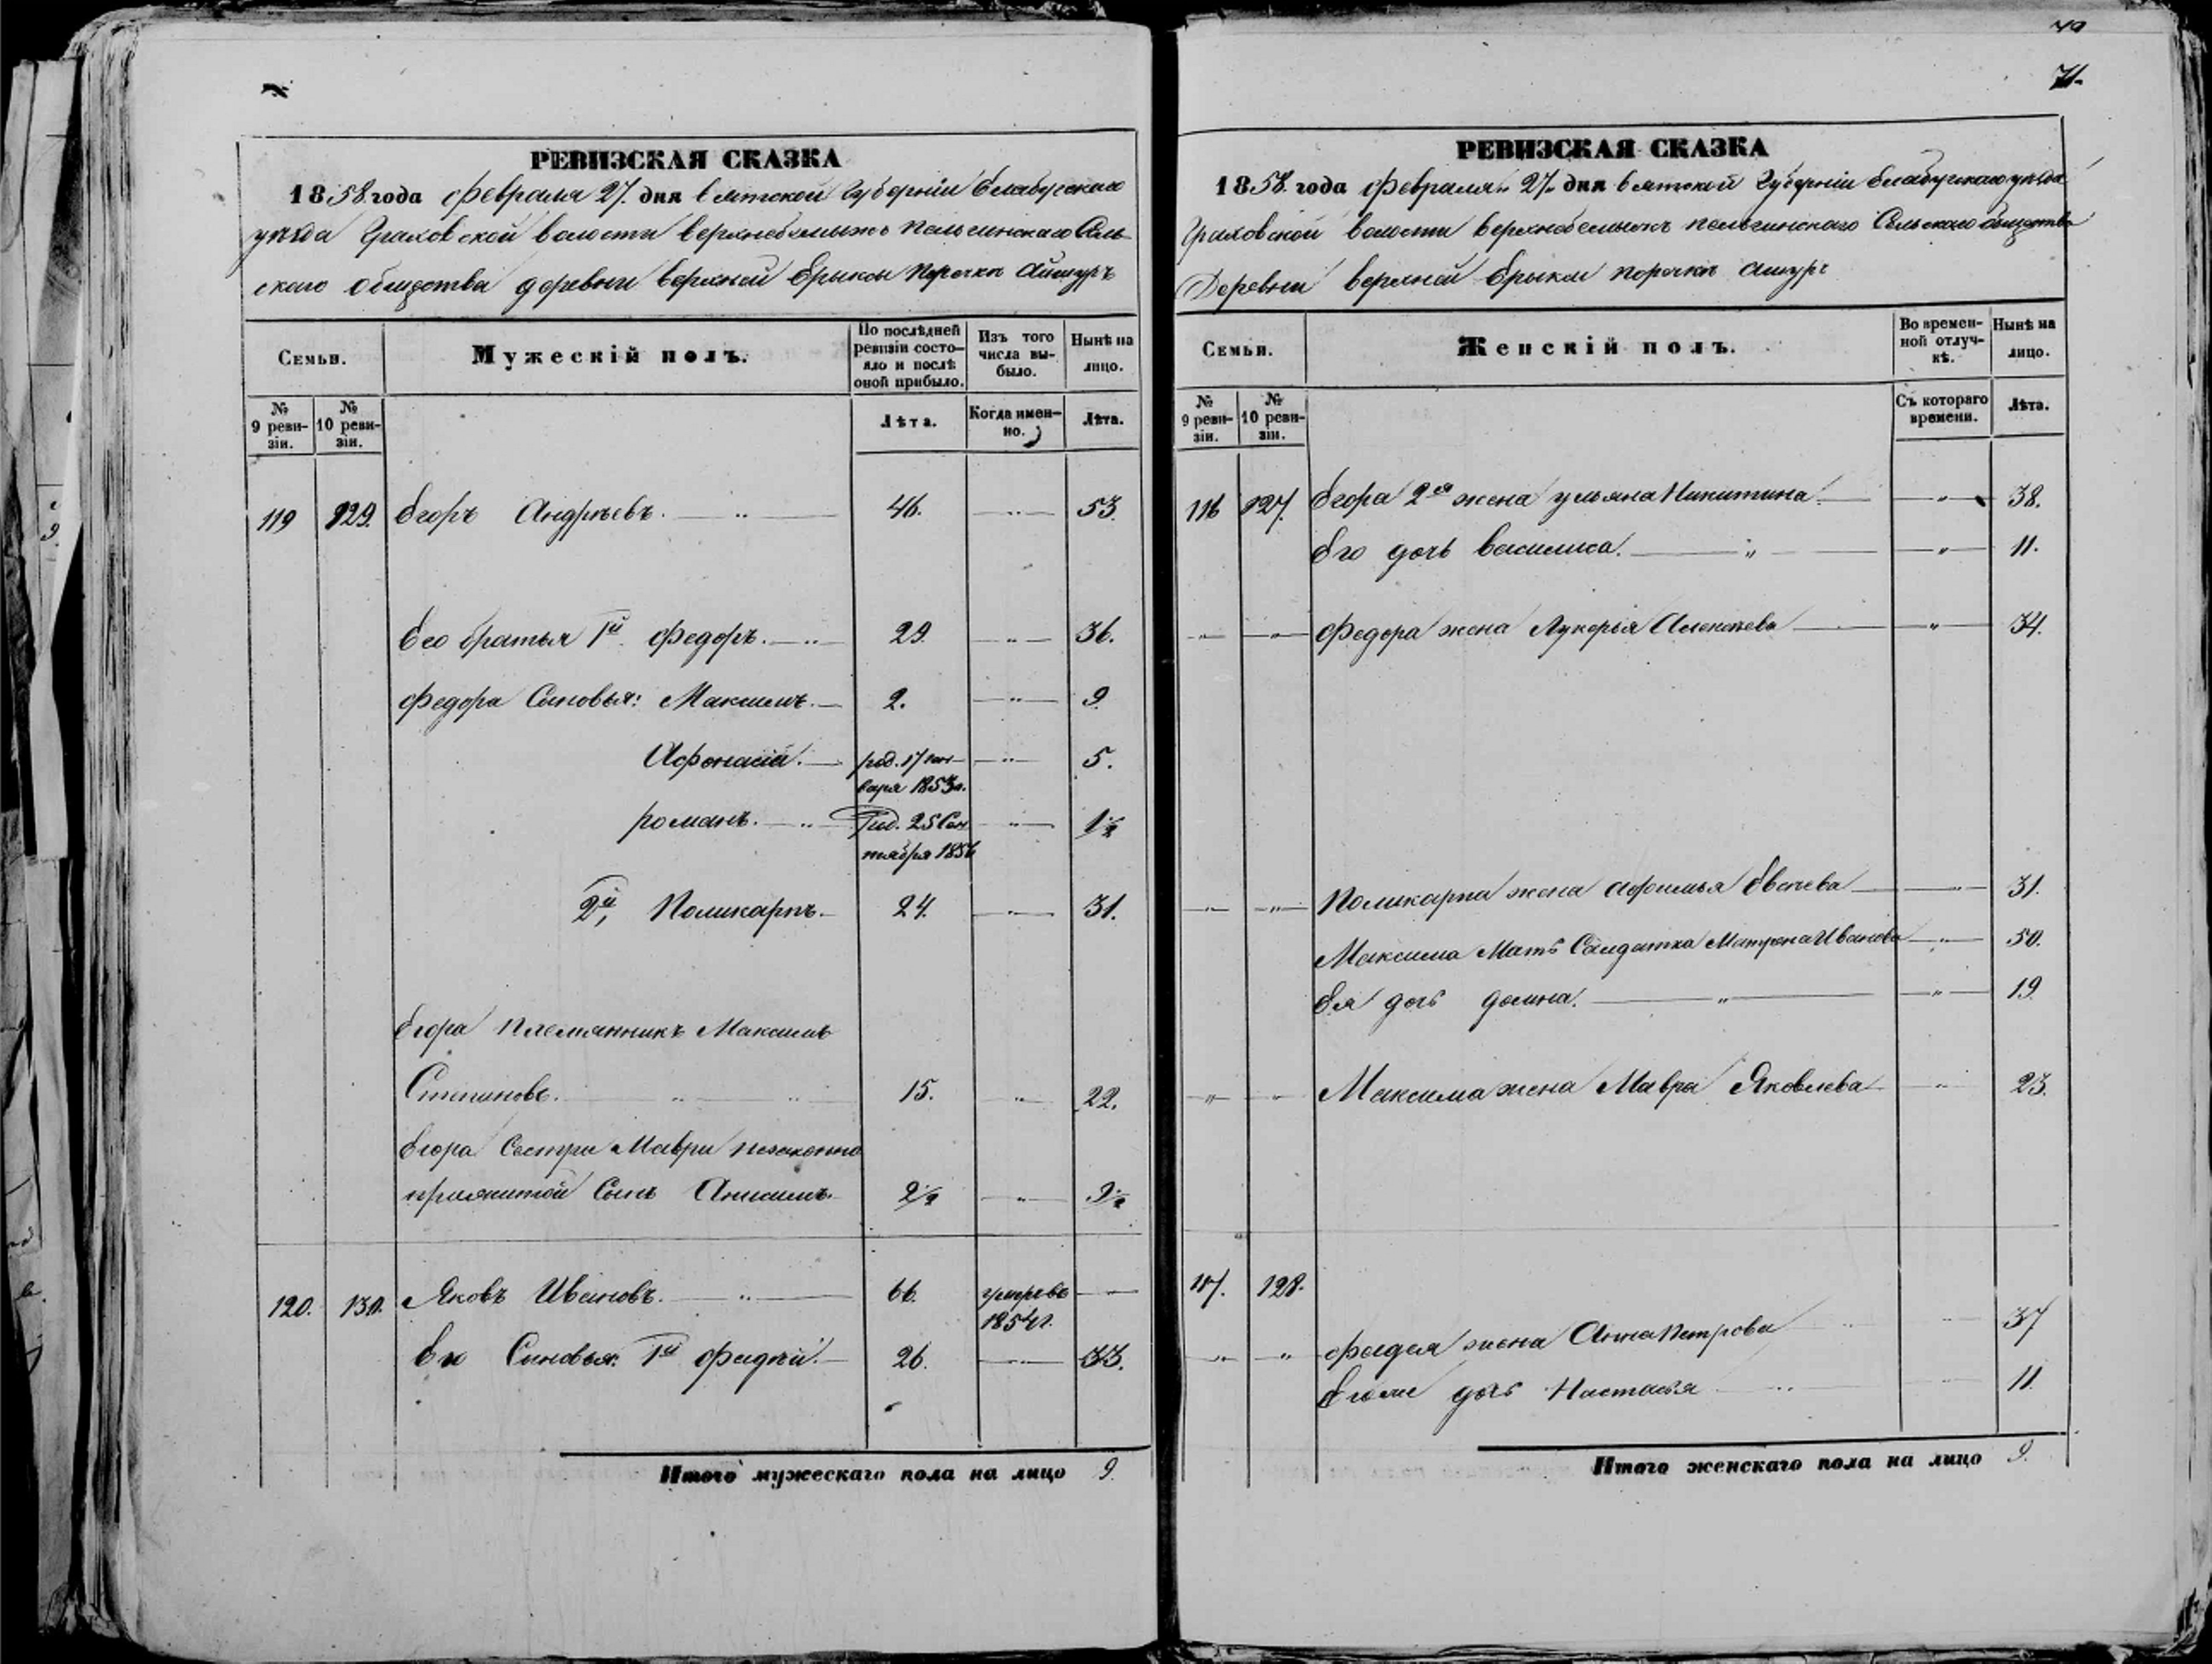 РЕВИЗСКАЯ СКАЗКА
1858 года февраля 27. дня вятской Губерніи Елабугскаго
уѣзда Граховской волости Сель-
скаго общества деревни верхней Ерыксы
Семьи.
Мужескій полъ.
По послѣдней ревизіи состо-яло и послѣ оной прибыло.
Изъ того числа вы-было.
Нынѣ на лицо.
№ 9 реви-зіи.
№ 10 реви-зіи.
Лѣта.
Когда имен-но.
Лѣта.
119 129. Егоръ Андреевъ. — „ — 46. — „ — 53.
Его братья 1й Федоръ. — „ — 29. — „ — 36.
Федора Сыновья: Максимъ. — 2. — „ — 9.
Афонасій. — род. 17 ян- — „ — 5.
варя 1853 г.
романъ. — „ — Род. 25 Сен — „ — 1½
тября 1856
2й, Поликарпъ. — 24. — „ — 31.
Егора племянникъ Максимъ
Степановъ. — „ — „ — 15. — „ — 22.
Егора Сестры Мавры незаконно
прижитой Сынъ Анисимъ. 2½ — „ — 9½
120. 130. Яковъ Ивановъ. — „ — 66. умеръ въ —
1854 г.
Его Сыновья: 1й Фадѣй. — 26. — „ — 33.
Итого мужескаго пола на лицо 9.
71.
РЕВИЗСКАЯ СКАЗКА
1858. года Февраля „ 27 „ дня вятской Губерніи Елабугскаго уѣзда
Граховской волости Сельскаго общества
Деревни верхней Ерыксы
Семьи.
Женскій полъ.
Во времен-ной отлуч-кѣ.
Нынѣ на лицо.
№ 9 реви-зіи.
№ 10 реви-зіи.
Съ котораго времени.
Лѣта.
116 127. Егора 2ая жена ульяна Никитина. — „ — 38.
Его дочь Василиса. — „ — „ — 11.
„ — „ — Федора жена Лукерья Алексеева — „ — 34.
„ — „ — Поликарпа жена Афимья — „ — 31.
Максима Мать Салдатка Матрена Иванова — „ — 50.
Ея дочь домна. — „ — „ — 19.
„ — „ — Максима жена Мавра Яковлева — „ — 23.
117. 128.
„ — „ — Фадея жена Анна Петрова — „ — 37
дочь Настасья — „ — 11.
Итого женскаго пола на лицо 9.